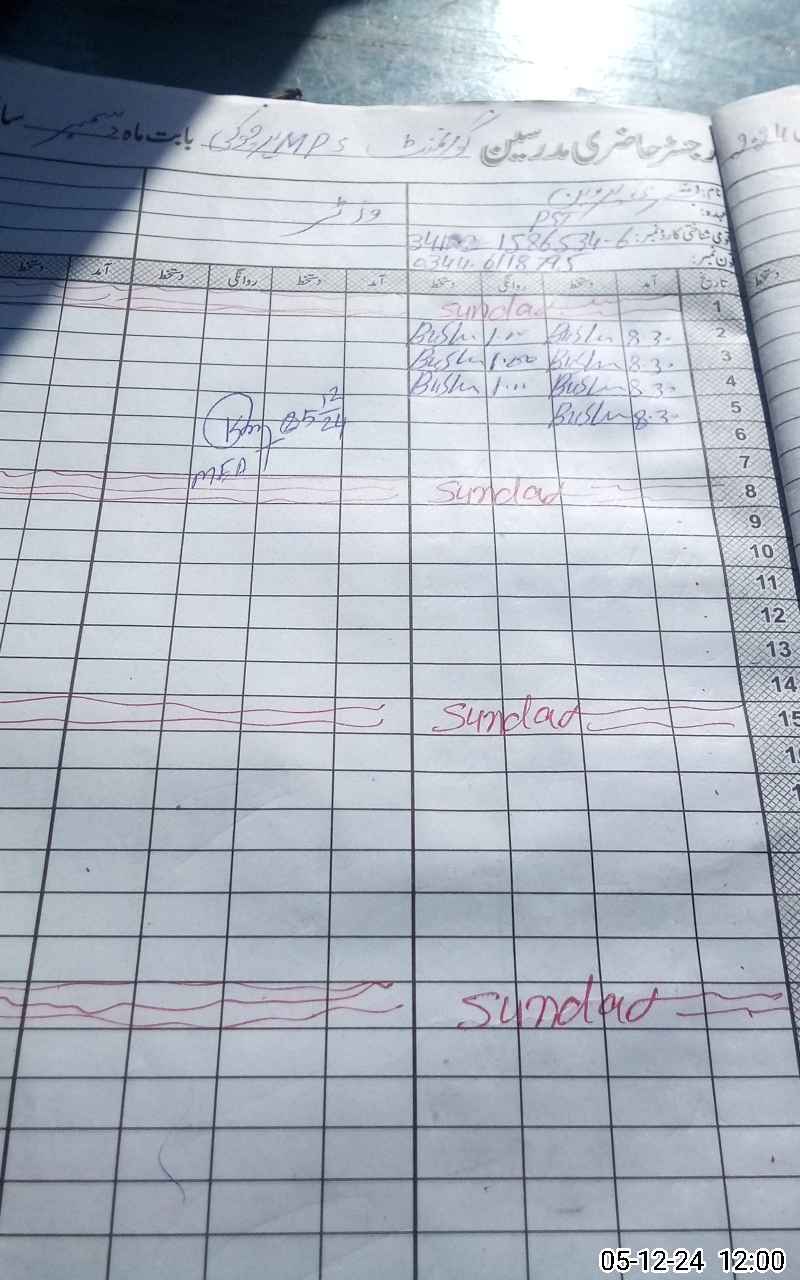 رجسٹر حاضری مدرسین گورنمنٹ MPS پیر چوکی بابت ماہ دسمبر
نام مدرس:
وزٹر
عہدہ: PST
قومی شناختی کارڈ نمبر: 1586534-6
فون نمبر: 0344-6118795
تاریخ آمد دستخط روانگی دستخط آمد دستخط روانگی دستخط آمد دستخط
1 sunday
2 8.30 Bushra 1.00 Bushra
3 8.30 Bushra 1.00 Bushra
4 8.30 Bushra 1.00 Bushra
5 8.30 Bushra
05 12/24
6
MEA
7
8 sunday
9
10
11
12
13
14
15 sunday
sunday
05-12-24 12:00